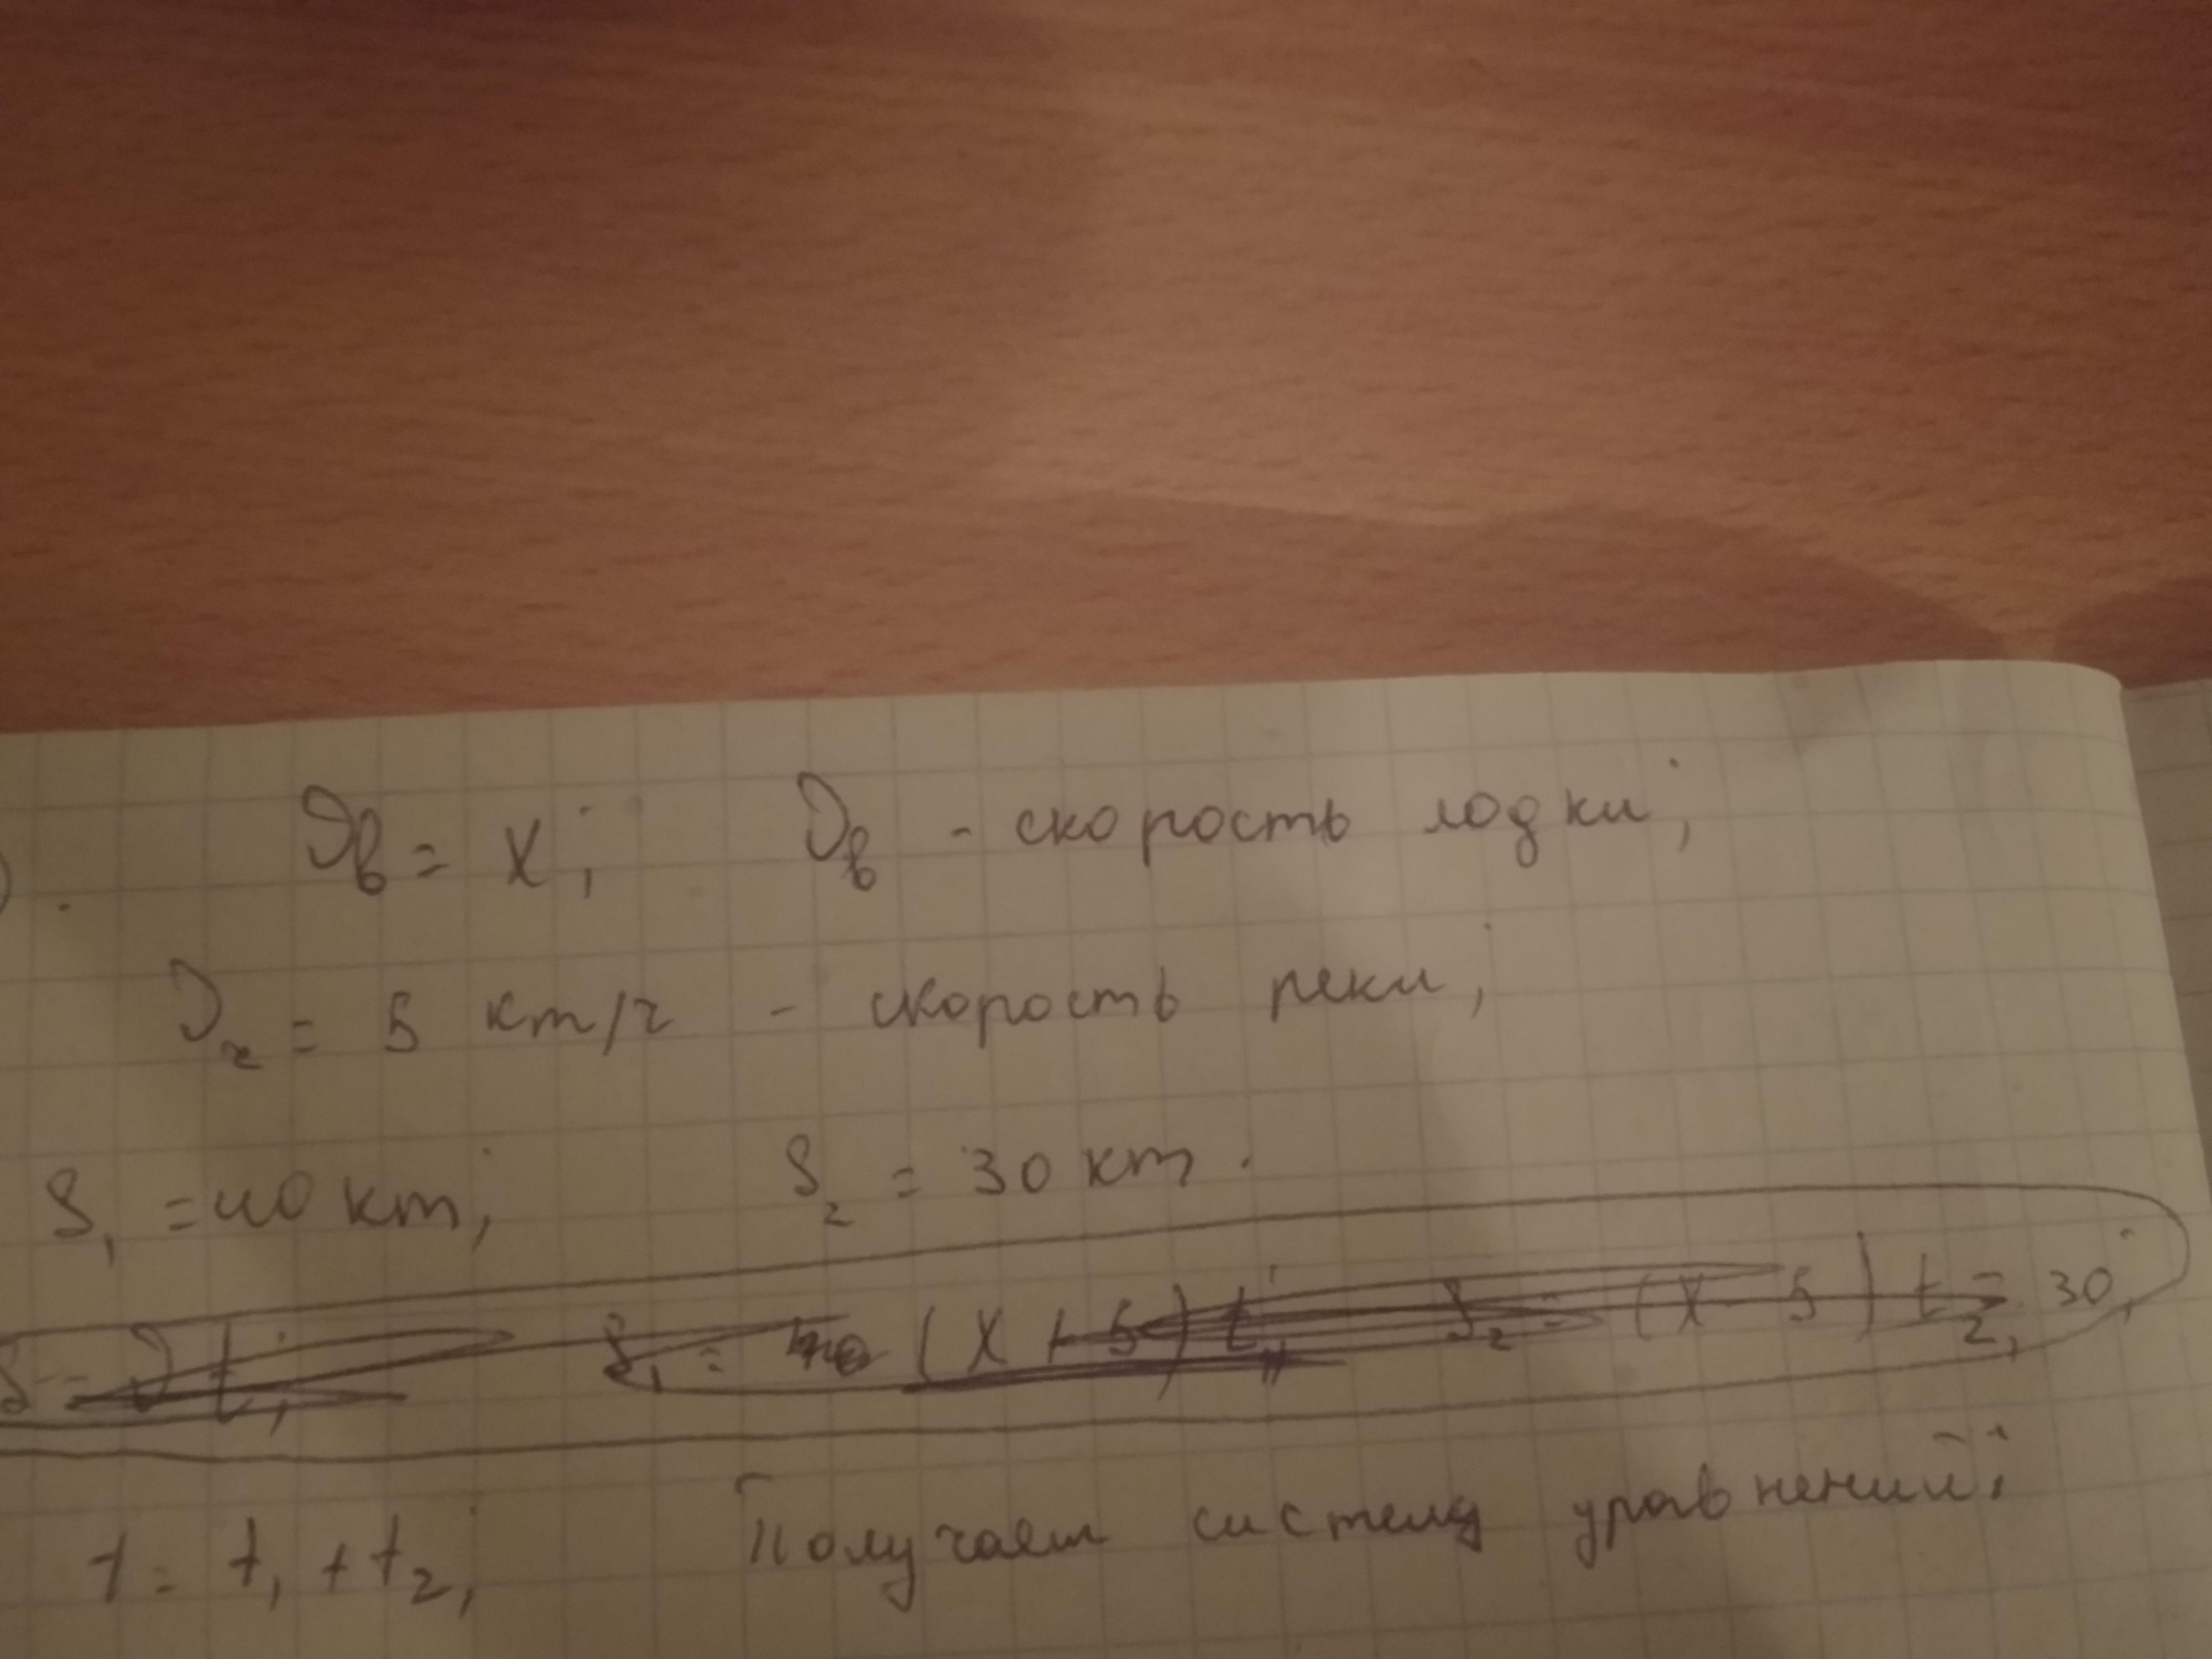 ). ϑв = x; ϑв - скорость лодки;
ϑr = 5 км/ч - скорость реки;
S₁ = 40 км; S₂ = 30 км.
S = ϑt; S₁ = (x + 5)t₁; S₂ = (x - 5)t₂ = 30;
t = t₁ + t₂; Получаем систему уравнений: